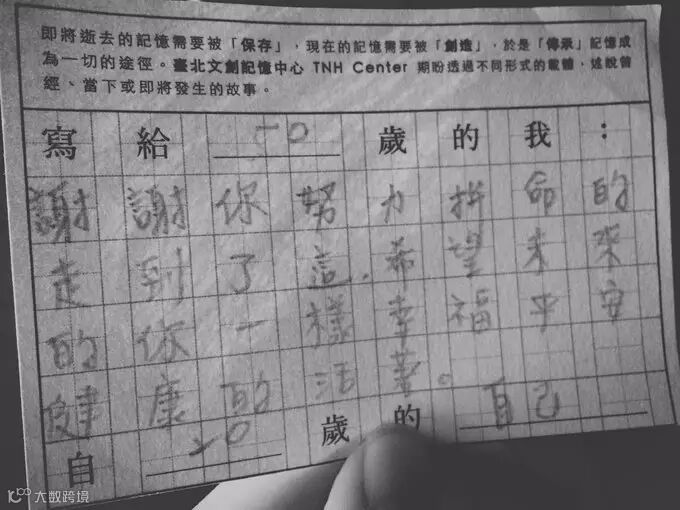 即將逝去的記憶需要被「保存」，現在的記憶需要被「創造」，於是「傳承」記憶成
為一切的途徑。臺北文創記憶中心 TNH Center 期盼透過不同形式的載體，述說曾
經、當下或即將發生的故事。
寫給 50 歲的我：
謝謝你努力拼命的
走到了這，希望未來
的你一樣幸福平安
健康的活著。
自 20 歲的 自己
大数跨境